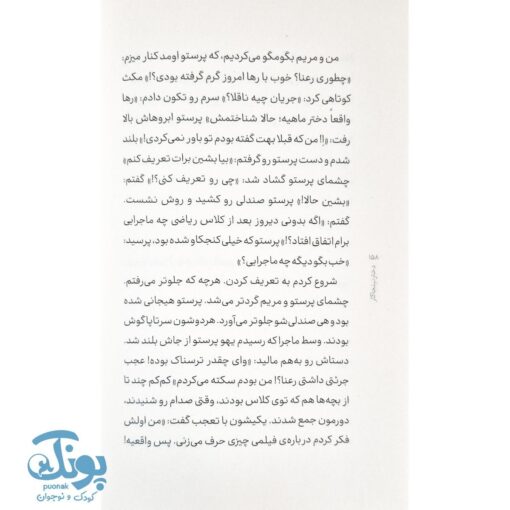 من و مریم بگومگو می‌کردیم، که پرستو اومد کنار میزم:
«چطوری رعنا؟ خوب با رها امروز گرم گرفته بودی؟!» مکث
کوتاهی کرد: «جریان چیه ناقلا؟» سرم رو تکون دادم: «رها
واقعاً دختر ماهیه؛ حالا شناختمش» پرستو ابروهاش بالا
رفت: «اِ! من که قبلا بهت گفته بودم تو باور نمی‌کردی!» بلند
شدم و دست پرستو رو گرفتم: «بیا بشین برات تعریف کنم»
چشمای پرستو گشاد شد: «چی رو تعریف کنی؟!» گفتم:
«بشین حالا!» پرستو صندلی رو کشید و روش نشست.
گفتم: «اگه بدونی دیروز بعد از کلاس ریاضی چه ماجرایی
برام اتفاق افتاد؟!» پرستو که خیلی کنجکاو شده بود، پرسید:
«خب بگو دیگه چه ماجرایی؟»
شروع کردم به تعریف کردن. هرچه که جلوتر می‌رفتم.
چشمای پرستو و مریم گردتر می‌شد. پرستو هیجانی شده
بود و هی صندلی‌شو جلوتر می‌آورد. هردوشون سرتاپا گوش
بودند. وسط ماجرا که رسیدم یهو پرستو از جاش بلند شد.
دستاش رو به‌هم مالید: «وای چقدر ترسناک بوده! عجب
جرئتی داشتی رعنا؟! من بودم سکته می‌کردم» کم‌کم چند تا
از بچه‌ها هم که توی کلاس بودند، وقتی صدام رو شنیدند،
دورمون جمع شدند. یکیشون با تعجب گفت: «من اولش
فکر کردم درباره‌ی فیلمی چیزی حرف می‌زنی. پس واقعیه!
پونک
puonak
کودک و نوجوان